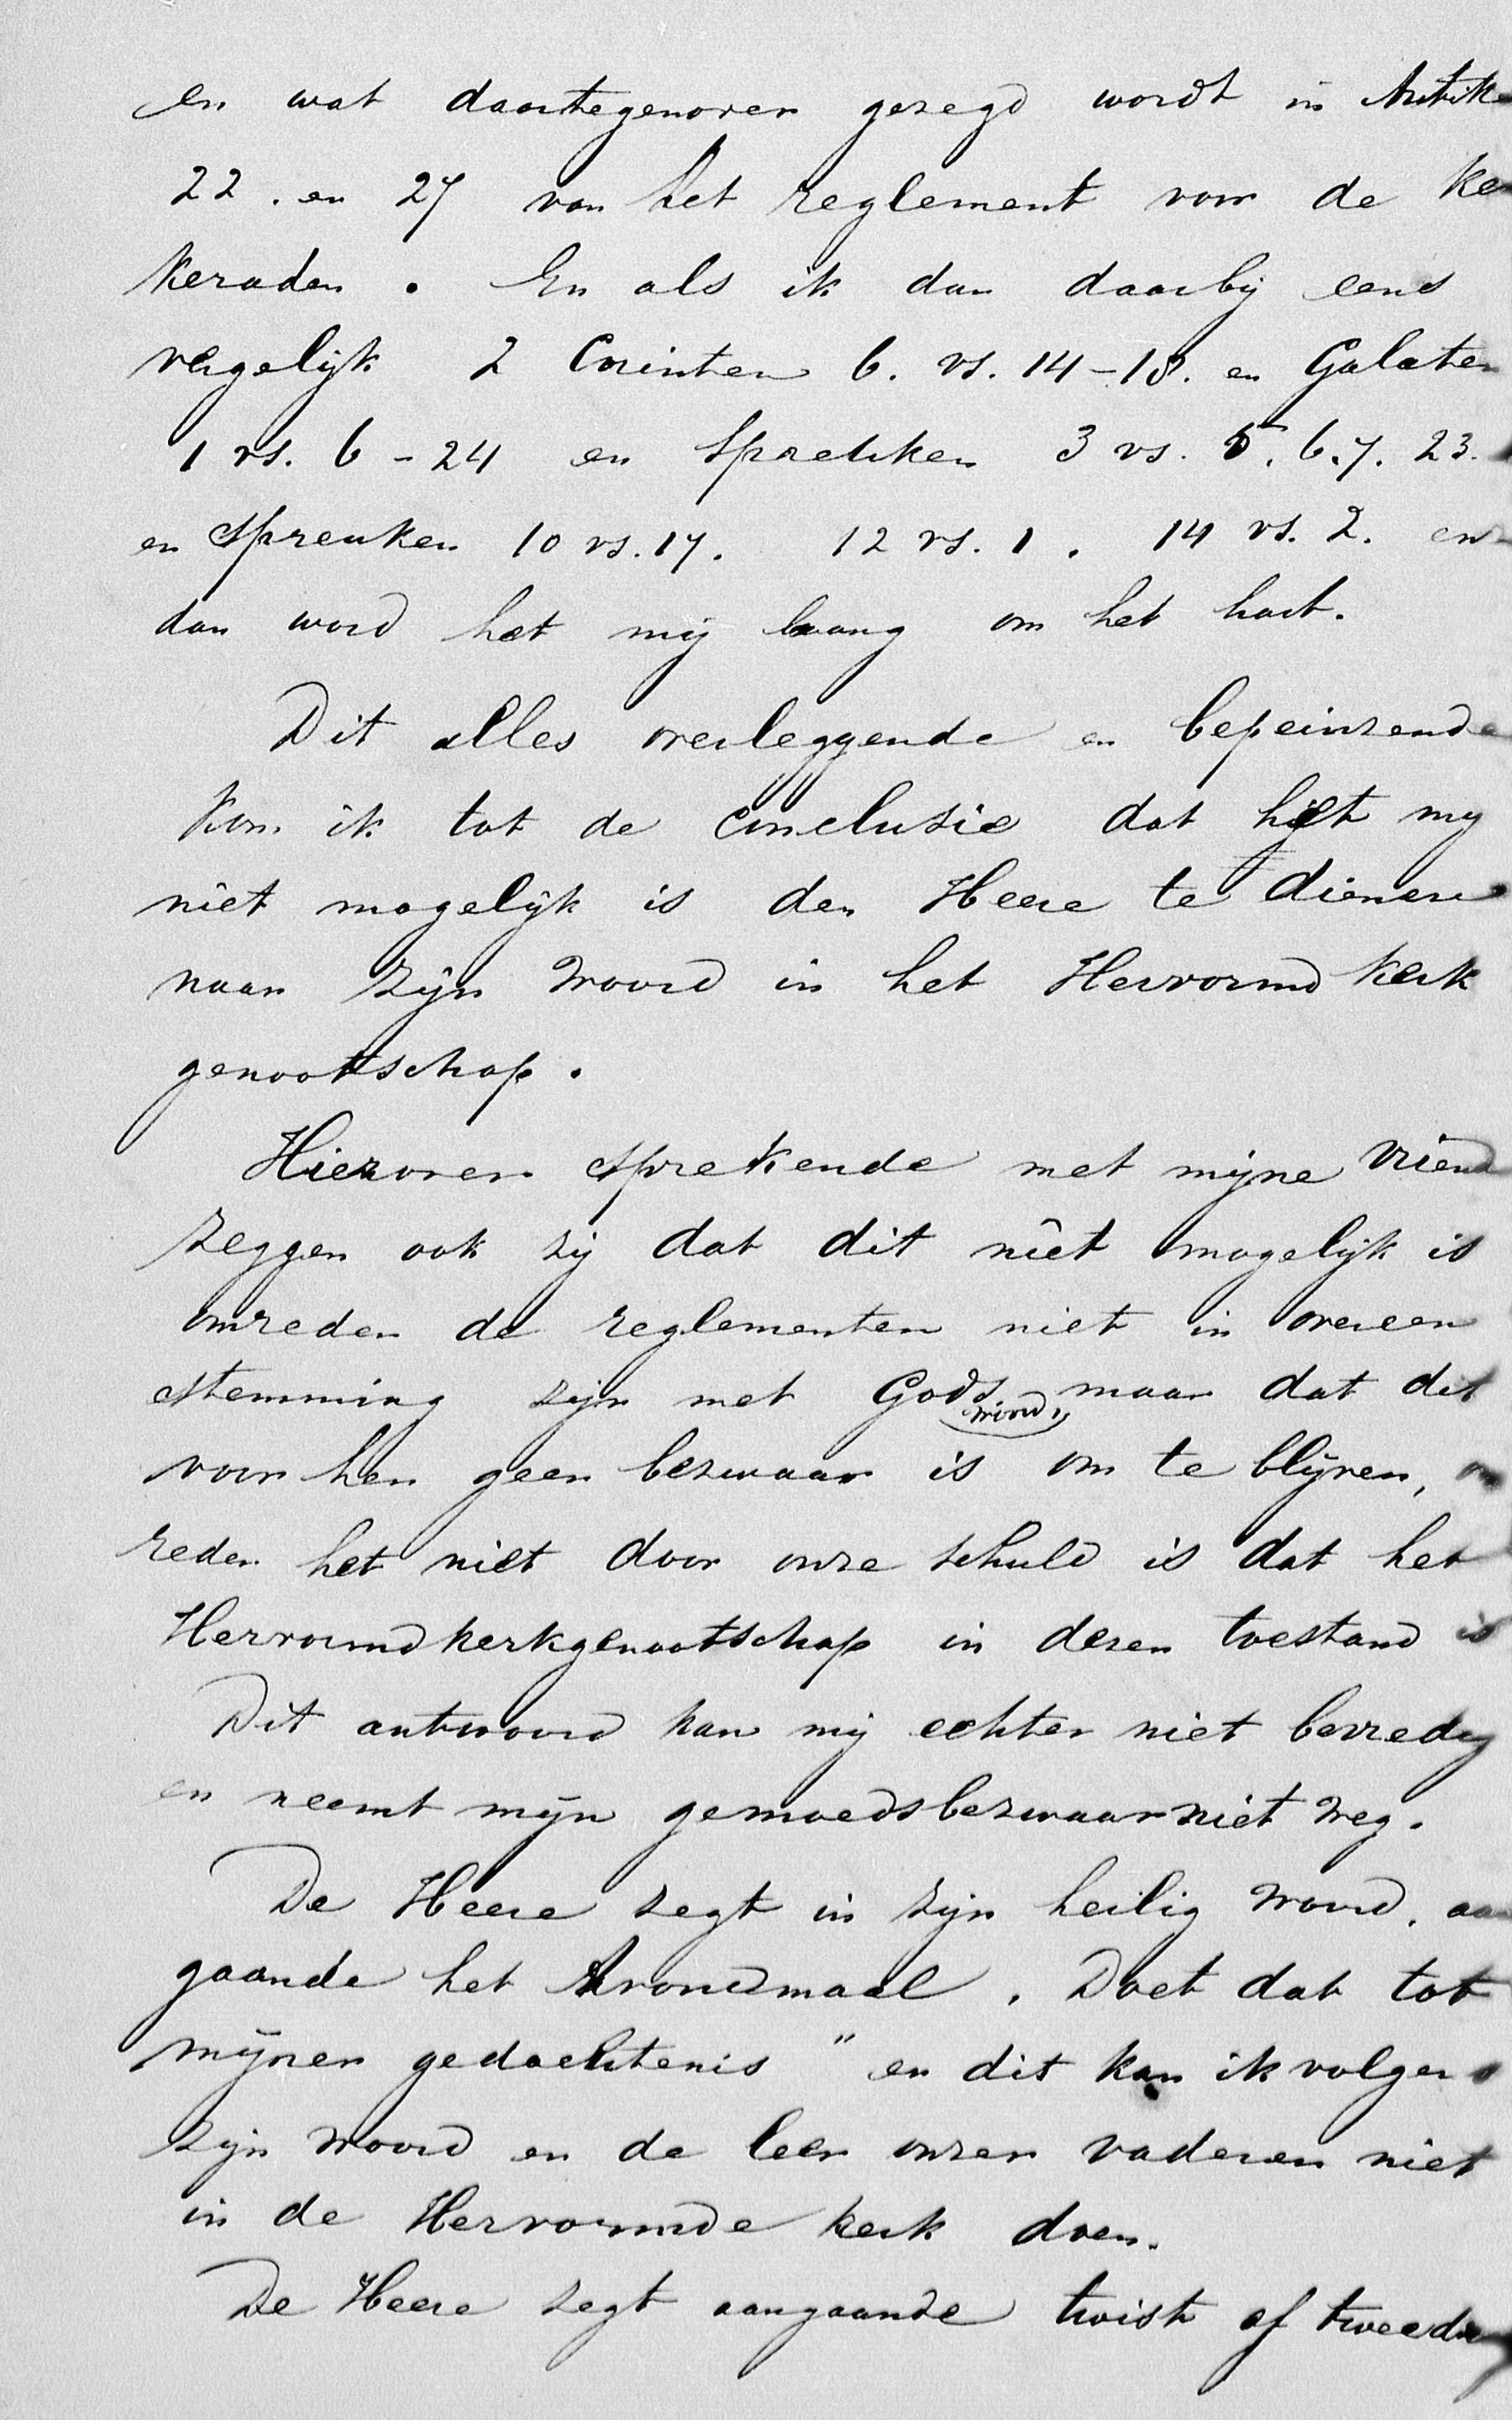 en wat daartegenover gezegd wordt in Artike
22. en 27 van het reglement voor de ker
keraden. En als ik dan daarbij eens
vergelijk 2 Corinten 6. vs. 14-18. en Galaten
1 vs. 6-24 en Spreuken 3 vs. 5. 6. 7. 23.
en spreuken 10 vs. 17. 12 vs. 1. 14 vs. 2. enz
dan word het mij baang om het hart.
Dit alles overleggende en bepeinzende
kom ik tot de conclusie dat het my
niet mogelijk is den Heere te dienen
naar zijn woord in het Hervormd kerk
genootschap.
Hierover sprekende met mijne vriend
zeggen ook zij dat dit niet mogelijk is
omreden de reglementen niet in overeen
stemming zijn met Gods woord, maar dat dit
voor hen geen bezwaar is om te blijven, om
reden het niet door onze schuld is dat het
Hervormd kerkgenootschap in dezen toestand is
Dit antwoord kan mij echter niet bevredig
en neemt mijn gemoedsbezwaar niet weg.
De Heere zegt in zijn heilig woord, aan
gaande het Avondmaal. Doet dat tot
mijner gedachtenis" en dit kan ik volgens
zijn woord en de leer onzer vaderen niet
in de Hervormde kerk doen.
De Heere zegt aangaande twist of tweedr